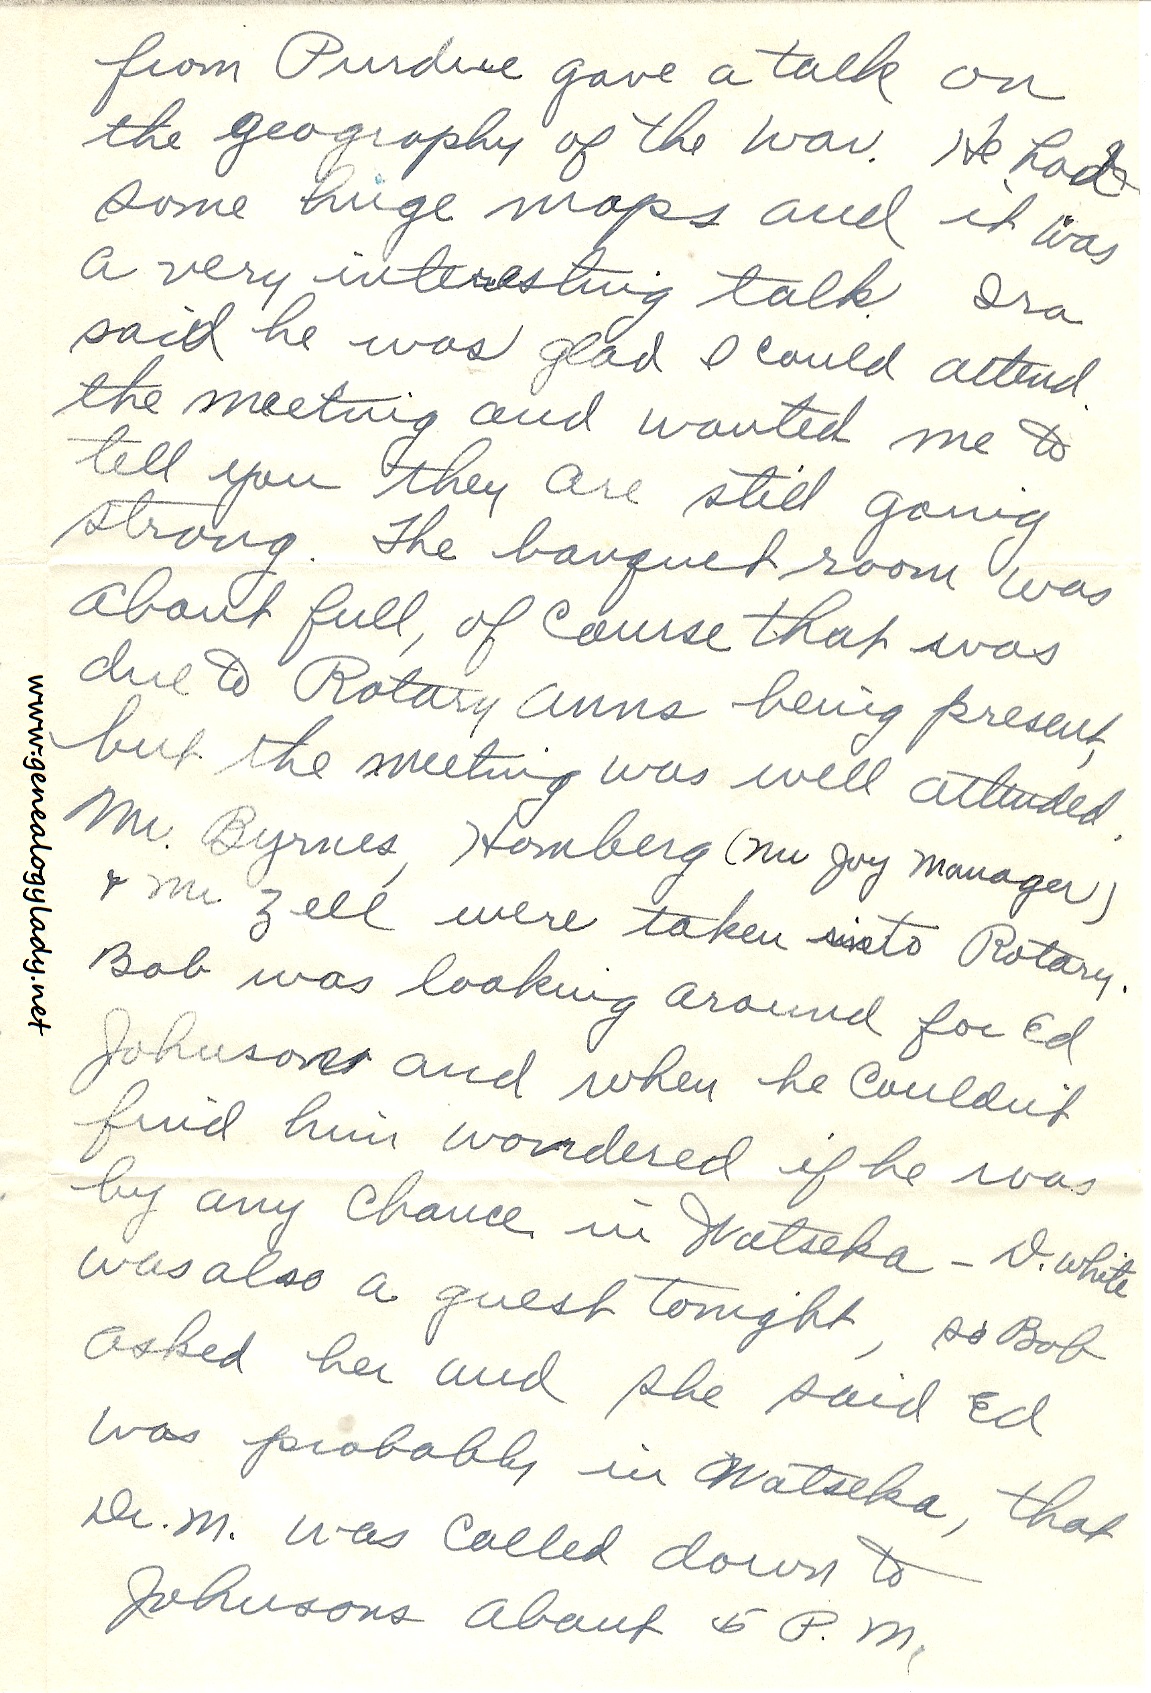 from Purdue gave a talk on
the geography of the war. He had
some huge maps and it was
a very interesting talk. Ira
said he was glad I could attend
the meeting and wanted me to
tell you they are still going
strong. The banquet room was
about full, of course that was
due to Rotary Anns being present,
but the meeting was well attended.
Mr. Byrnes, Homberg (new Joy Manager)
+ Mr. Zell were taken into Rotary.
Bob was looking around for Ed
Johnson and when he couldn't
find him wondered if he was
by any chance in Watseka - D. White
was also a guest tonight, so Bob
asked her and she said Ed
was probably in Watseka, that
Dr. M. was called down to
Johnsons about 5 P.M.
www.genealogylady.net